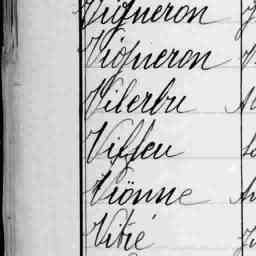 Vigneron
Vigneron
Vilerbu
Viffeu
Viönne
Vitré